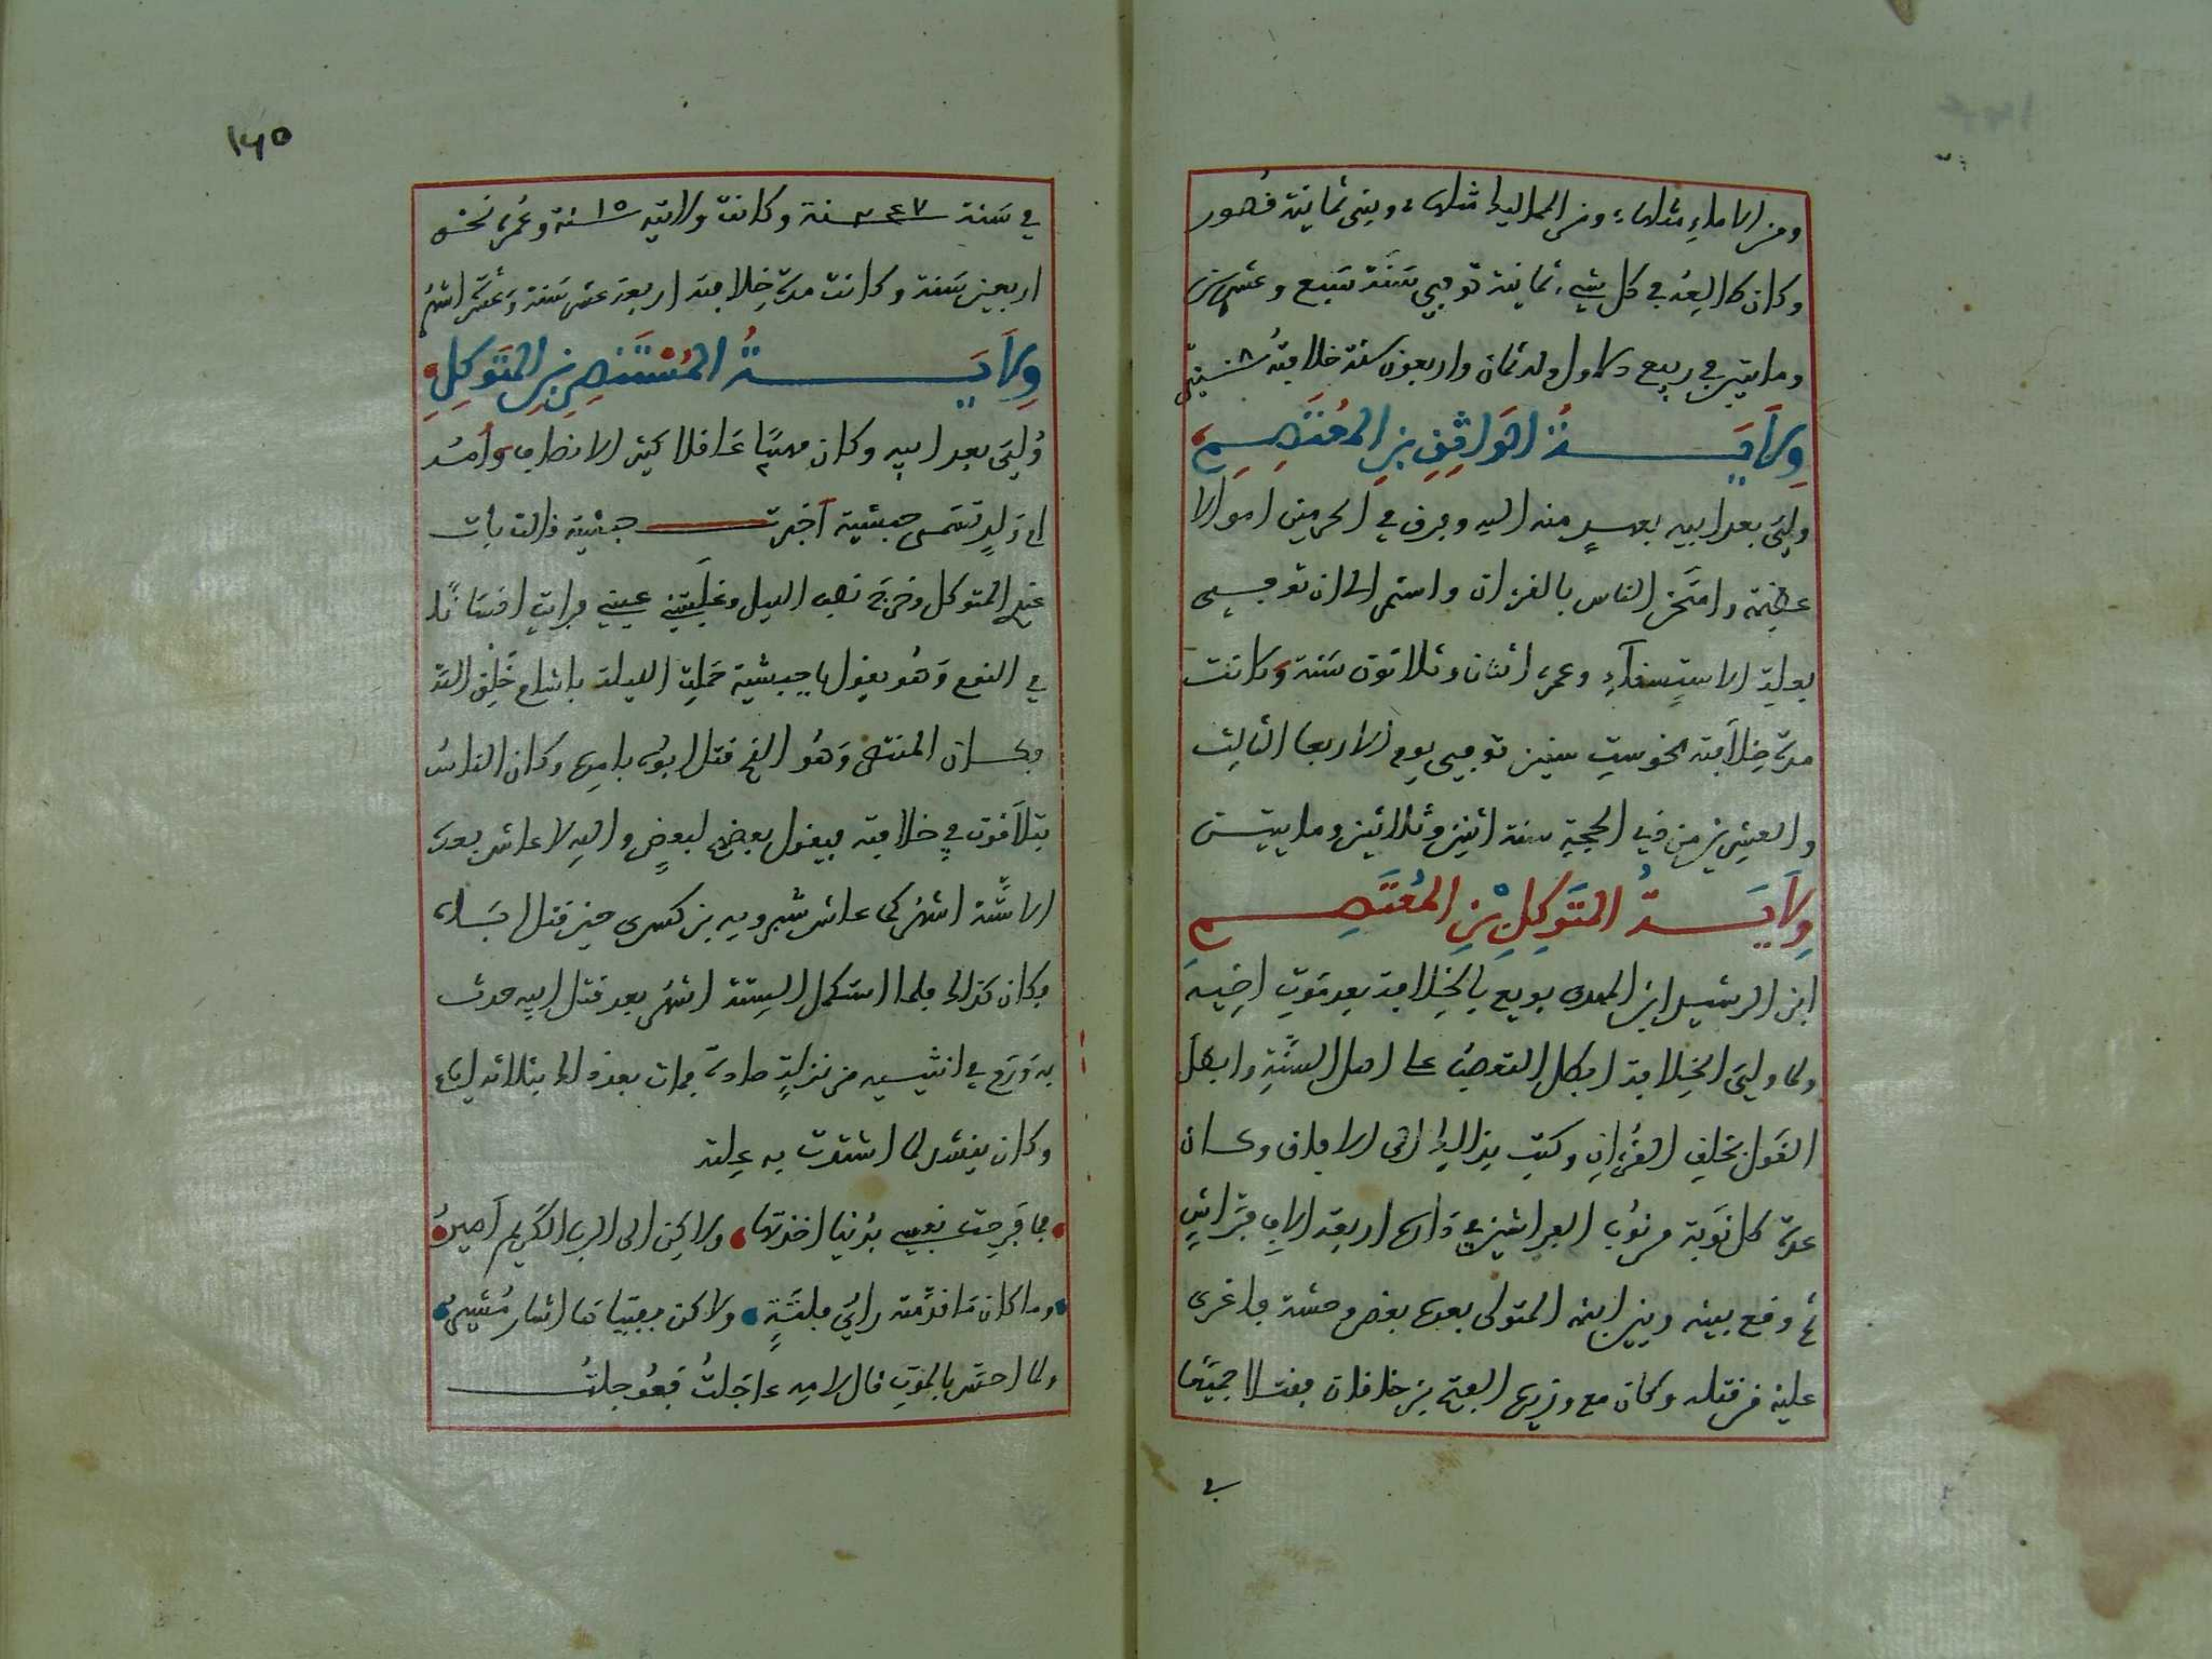 ومن الاماء مثلها، ومن المماليك مثلها، وبنى ثمانية قصور
وكان طالعه في كل شيء ثمانية توفي سَنَة سَبع وعشرين
ومايتين في ربيع الاول وله ثمان واربعون سنة خلافتهُ ٨ سنين
وِلَايَــةُ الوَاثِقِ بنِ المُعْتَصِــم
وليَ بعد ابيه بعهدٍ منه اليه وفرق في الحرمين اموالا
عظيمة وامتحن الناس بالقرءان واستمر الى ان توفــي
بعلة الاستسقآء وعمره اثنان وثلاثون سَنة وكانت
مدة خِلَافته نحو ستِ سنين توفي يوم الاربعا الثالث
والعشرين من ذي الحجة سنة اثنين وثلاثين ومايتيــن
وِلَايَــةُ المتَوَكِلِ بْنِ المُعْتَصِــم
ابن الرشيد ابن المهدى بويع بالخِلافة بعد مَوتِ اخيه
ولما وليَ الخِلافة ابطل التعصبَ على اهل السنَّة وابطل
القَول بخلقِ القُرءانِ وكتب بذالك الى الافاق وكــان
عدة كل نَوبة من نُوب الفراشين في دارهِ اربعة الاف فرَّاشٍ
ثم وقع بينه وبين ابنه المتولى بعده بعض وحشة فاغرى
عليه من قتله وكان مع وزيره الفتح بن خاقان فقتلا جميعًا
في
١٦٥
في سَنة ٢٤٧ــنة وكانت ولايته ١٥ سنة وعُمره نحْو
اربعين سَنة وكانت مدة خِلافته اربعة عشر سَنة وَعشَرَة اشهُر
وِلَايَــةُ المُنْتَصِرِ بنِ المتَوَكِلِ
وُليَ بعد ابيه وكان مهيبًا عَاقلا كثير الانصاف وأمُه
ام وَلدٍ تسَمى حبشية أخبرت ــــ حبشية قالت بات
عندي المتوكل وخرجَ نصف اليل وغَلَبتني عيني فرايت انسَانًا
في النوم وَهُو يقول يا حبشية حَمَلتِ الليلة باشام خَلق الله
فكــان المنتصر وَهُو الذي قتل ابوه بامره وكان الناسُ
يتلاقون في خلافته فيقول بعضهم لبعضٍ والله لا عاش بعده
الا ستَّة اشهُر كما عاش شيرويه بن كسرى حين قتل ابَــاه
فكان كذالك فلما استكمل الستة اشهُر بعد قتل ابيه حدث
به وَرَم في انثييه من نزلةٍ حادة فمات بعد ذالك بثلاثة ليالٍ
وكان ينشد لما اشتدت به عِلته
فما فَرِحت نفسي بدُنيا اخذتها، ولاكِن الى الرب الكَريم أصيرُ
وما كان مَا قدَّمته رايَ فلتَةٍ، ولاكن بفتياهَا اشار مُشيرُ
ولما احتضر بالمَوتِ قال لامه عاجَلتُ فعُوجلتُ